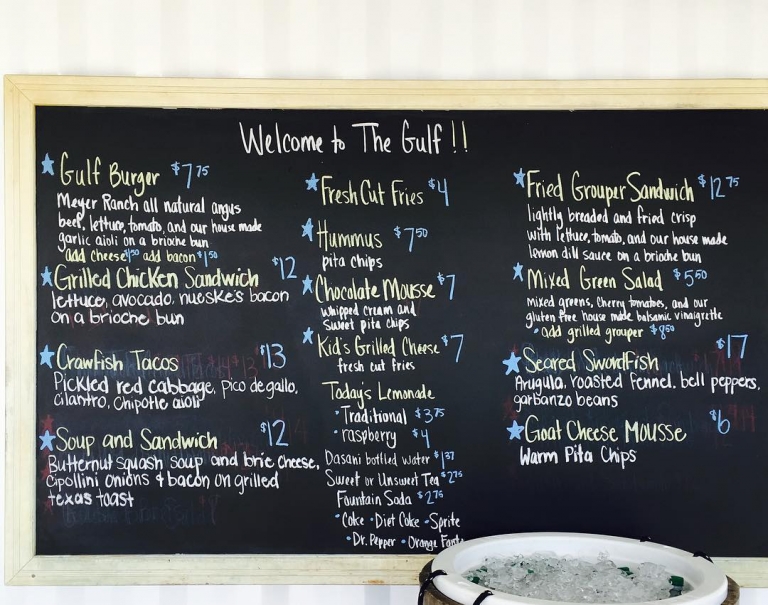 Welcome to The Gulf !!
Gulf Burger $7.75
Meyer Ranch all natural angus
beef, lettuce, tomato, and our house made
garlic aioli on a brioche bun
add cheese $1.50 add bacon $1.50
Grilled Chicken Sandwich $12
lettuce, avocado, nueske's bacon
on a brioche bun
Crawfish Tacos $13
Pickled red cabbage, pico de gallo,
cilantro, Chipotle aioli
Soup and Sandwich $12
Butternut squash soup and brie cheese,
cipollini onions & bacon on grilled
texas toast
Fresh Cut Fries $4
Hummus $7.50
pita chips
Chocolate Mousse $7
whipped cream and
sweet pita chips
Kid's Grilled Cheese $7
fresh cut fries
Today's Lemonade
• Traditional $3.75
• raspberry $4
Dasani bottled water $1.37
Sweet or Unsweet Tea $2.75
Fountain Soda $2.75
• Coke • Diet Coke • Sprite
• Dr. Pepper • Orange Fanta
Fried Grouper Sandwich $12.75
lightly breaded and fried crisp
with lettuce, tomato, and our house made
lemon dill sauce on a brioche bun
Mixed Green Salad $5.50
mixed greens, cherry tomatoes, and our
gluten free house made balsamic vinaigrette
• add grilled grouper $8.50
Seared Swordfish $17
Arugula, roasted fennel, bell peppers,
garbanzo beans
Goat Cheese Mousse $6
Warm Pita Chips